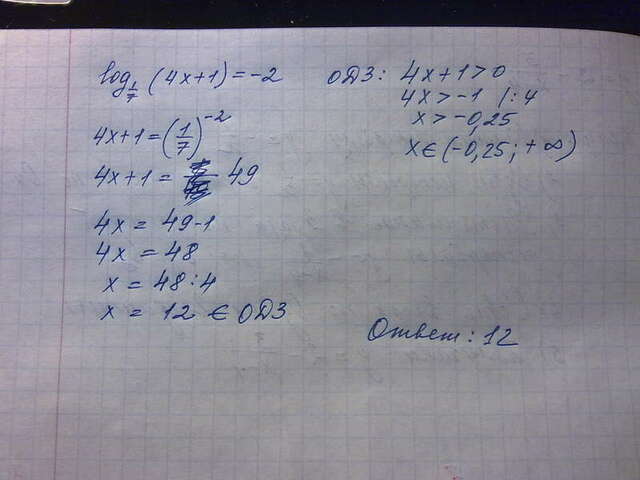 log_{1/7} (4x+1) = -2
4x+1 = (1/7)^{-2}
4x+1 = 49
4x = 49-1
4x = 48
x = 48:4
x = 12 ∈ ОДЗ
ОДЗ: 4x+1>0
4x>-1 |:4
x>-0,25
x∈(-0,25;+∞)
Ответ: 12